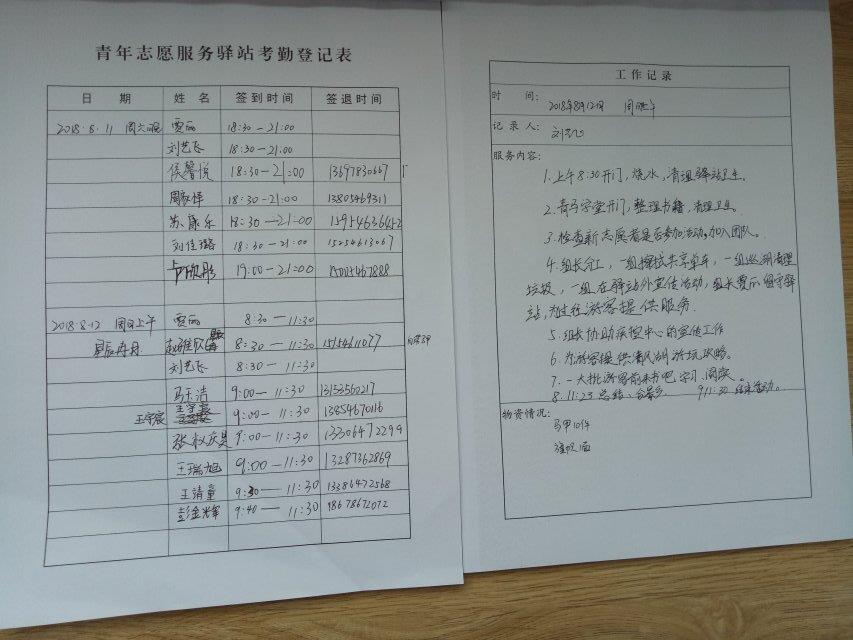 青年志愿服务驿站考勤登记表
日 期 姓 名 签到时间 签退时间
2018.8.11 周六晚 贾丽 18:30-21:00
刘艺飞 18:30-21:00
侯馨悦 18:30-21:00 13697830667
周毅怿 18:30-21:00 13805469311
苏康乐 18:30-21:00 15954636452
刘佳璐 18:30-21:00 15254613067
卢欣彤 19:00-21:00 15005467888
2018.8.12 周日上午 贾丽 8:30-11:30
8:30-11:30 15154611077
刘艺飞 8:30-11:30
马玉洁 9:00-11:30 13153560217
王宇宸 9:00-11:30 13854670116
9:00-11:30 13306472299
王瑞旭 9:00-11:30 13287362869
王靖童 9:30-11:30 13386472568
彭金辉 9:40-11:30 18678672072
工作记录
时 间: 2018年8月12日 周日上午
记 录 人: 刘艺飞
服务内容:
1.上午8:30开门,烧水,清理驿站卫生。
2.青马学堂开门,整理书籍,清理卫生。
3.检查新志愿者是否参加活动,加入团队。
4.组长分工,一组擦拭共享单车,一组巡湖清理
垃圾,一组在驿站外宣传活动,组长贾丽留守驿
站,为过往游客提供服务.
5.组长协助疾控中心的宣传工作
6.为游客提供清风湖游玩攻略。
7.一大批游客前来书吧学习、阅读。
8.11:25 总结、合影 9.11:30 结束活动。
物资情况:
马甲10件